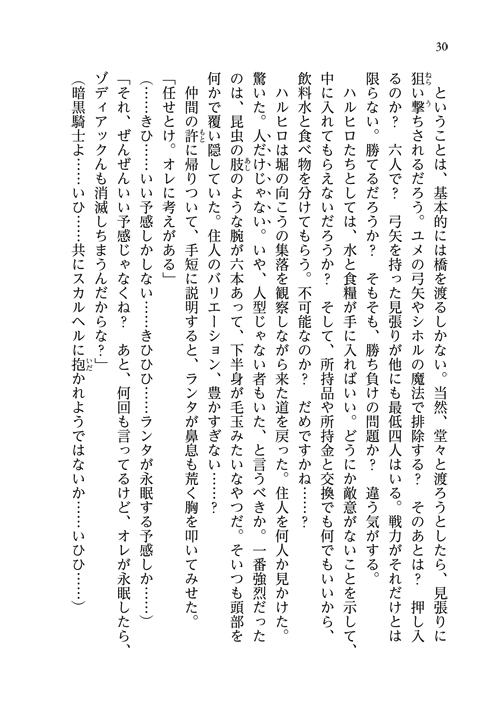 30
ということは、基本的には橋を渡るしかない。当然、堂々と渡ろうとしたら、見張りに
狙い撃ちされるだろう。ユメの弓矢やシホルの魔法で排除する？　そのあとは？　押し入
るのか？　六人で？　弓矢を持った見張りが他にも最低四人はいる。戦力がそれだけとは
限らない。勝てるだろうか？　そもそも、勝ち負けの問題か？　違う気がする。
ハルヒロたちとしては、水と食糧が手に入ればいい。どうにか敵意がないことを示して、
中に入れてもらえないだろうか？　そして、所持品や所持金と交換でも何でもいいから、
飲料水と食べ物を分けてもらう。不可能なのか？　だめですかね……？
ハルヒロは堀の向こうの集落を観察しながら来た道を戻った。住人を何人か見かけた。
驚いた。人だけじゃない。いや、人型じゃない者もいた、と言うべきか。一番強烈だった
のは、昆虫の肢のような腕が六本あって、下半身が毛玉みたいなやつだ。そいつも頭部を
何かで覆い隠していた。住人のバリエーション、豊かすぎない……？
仲間の許に帰りついて、手短に説明すると、ランタが鼻息も荒く胸を叩いてみせた。
「任せとけ。オレに考えがある」
（……きひ……いい予感しかしない……きひひひ……ランタが永眠する予感しか……）
「それ、ぜんぜんいい予感じゃなくね？　あと、何回も言ってるけど、オレが永眠したら、
ゾディアックんも消滅しちまうんだからな？」
（暗黒騎士よ……いひ……共にスカルヘルに抱かれようではないか……いひひ……）